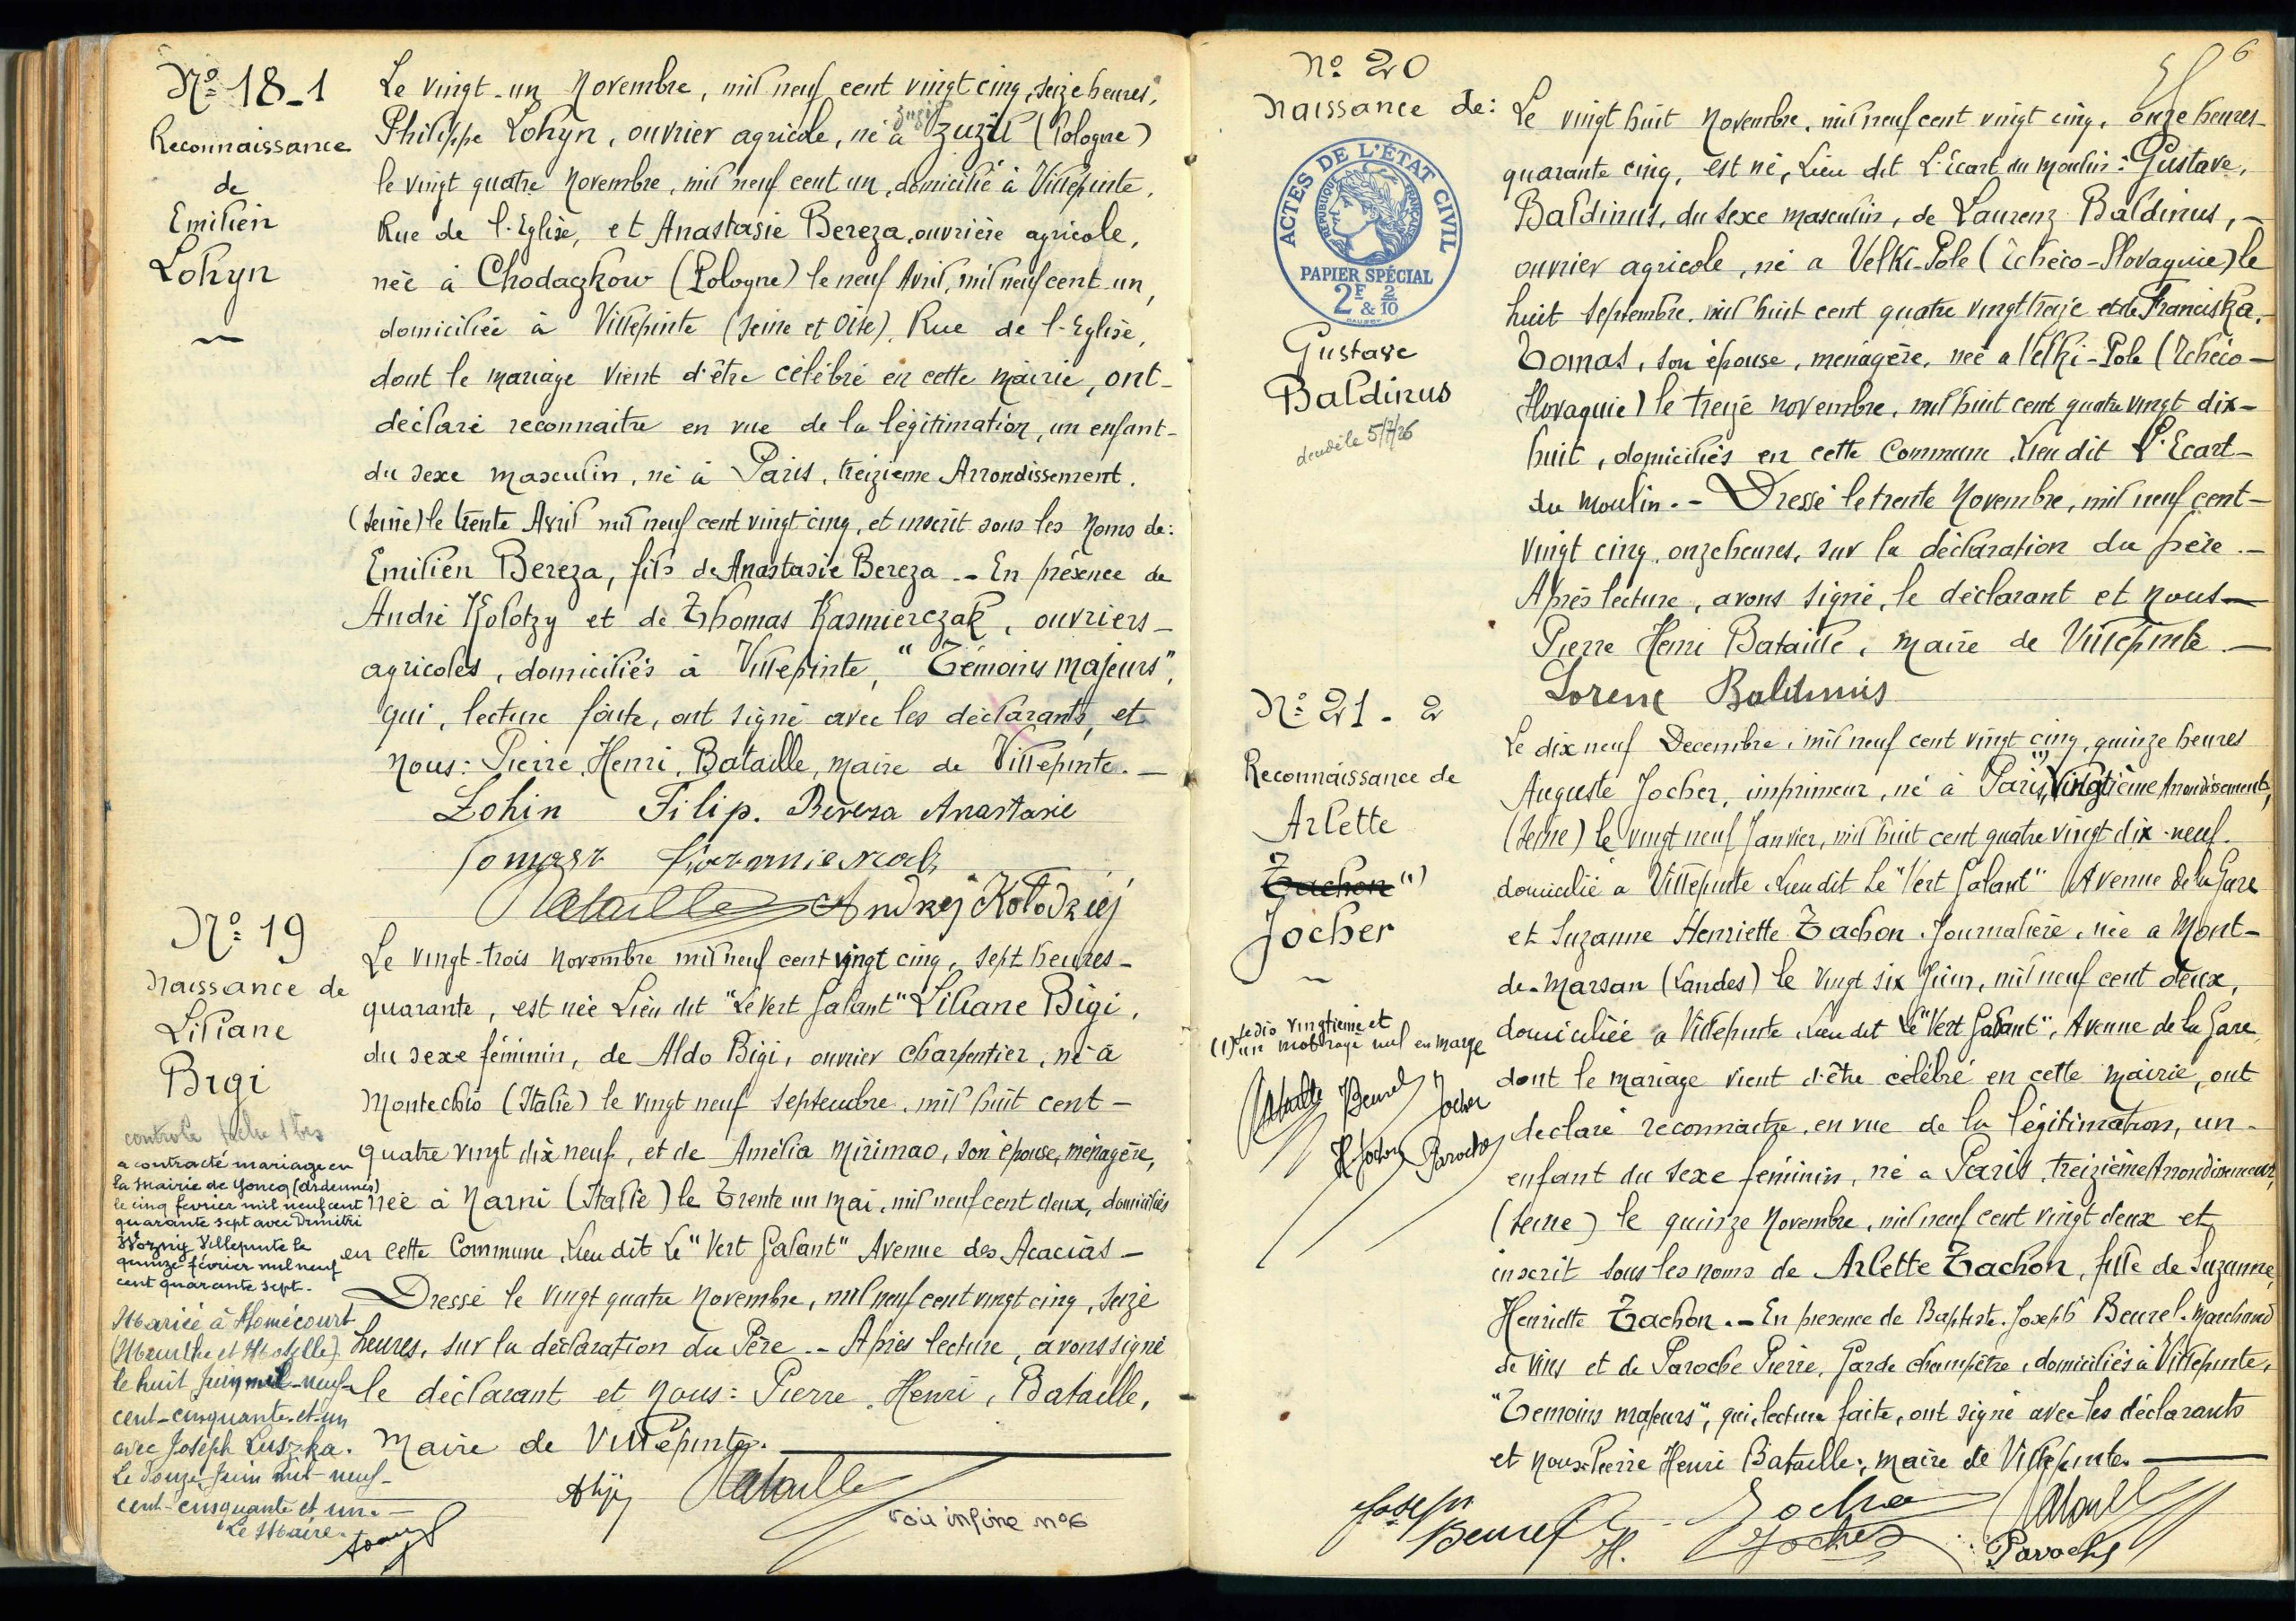 Nº 18-1
Reconnaissance
de
Emilien
Lohyn
Le vingt-un Novembre, mil neuf cent vingt cinq, seize heures,
Philippe Lohyn, ouvrier agricole, né à Zuzil (Pologne)
le vingt quatre Novembre, mil neuf cent un, domicilié à Villepinte,
Rue de l'Eglise, et Anastasie Bereza, ouvrière agricole,
née à Chodaczkow (Pologne) le neuf Avril, mil neuf cent un,
domiciliée à Villepinte (Seine et Oise), Rue de l'Eglise,
dont le mariage vient d'être célébré en cette mairie, ont-
déclaré reconnaitre en vue de la légitimation, un enfant-
du sexe masculin, né à Paris, treizième Arrondissement,
(Seine) le trente Avril mil neuf cent vingt cinq, et inscrit sous les Noms de:
Emilien Bereza, fils de Anastasie Bereza.- En présence de
André Kolotzy et de Thomas Kasmierczak, ouvriers-
agricoles, domiciliés à Villepinte, "Témoins majeurs",
qui, lecture faite, ont signé avec les déclarants, et
Nous: Pierre, Henri, Bataille, maire de Villepinte.-
Lohin Filip. Bereza Anastasie
Tomasz
Bataille Andrzej Kołodziej
Nº 19
Naissance de
Liliane
Bigi
Le vingt-trois Novembre mil neuf cent vingt cinq, sept heures-
quarante, est née Lieu dit "Le Vert Galant" Liliane Bigi,
du sexe féminin, de Aldo Bigi, ouvrier charpentier, né à
Montechio (Italie) le vingt neuf Septembre, mil huit cent-
quatre vingt dix neuf, et de Amélia Mirimao, son épouse, ménagère,
née à Narni (Italie) le Trente un Mai, mil neuf cent deux, domiciliés
en cette Commune Lieu dit Le "Vert Galant" Avenue des Acacias-
Dressé le vingt quatre Novembre, mil neuf cent vingt cinq, seize
heures, sur la déclaration du Père.- Après lecture, avons signé
le déclarant et Nous: Pierre, Henri, Bataille,
Maire de Villepinte.
Bataille
voir infine nº6
a contracté mariage en
la Mairie de Yoncq (Ardennes)
le cinq février mil neuf cent
quarante sept avec Dimitri
Wozniy, Villepinte le
quinze février mil neuf
cent quarante sept.
Mariée à Homécourt
(Meurthe et Moselle)
le huit Juin mil-neuf-
cent-cinquante-et-un
avec Joseph Luszka.
Le douze Juin mil-neuf-
cent-cinquante et un.-
Le Maire.
6
Nº 20
Naissance de:
ACTES DE L'ÉTAT CIVIL
RÉPUBLIQUE FRANÇAISE
PAPIER SPÉCIAL
2F & 2/10
Gustave
Baldinus
décédé le 5/7/26
Le vingt huit Novembre, mil neuf cent vingt cinq, onze heures-
quarante cinq, est né, Lieu dit L'Ecart du Moulin: Gustave,
Baldinus, du sexe masculin, de Laurenz Baldinus,-
ouvrier agricole, né à Velki-Pole (Tchéco-Slovaquie) le
huit Septembre, mil huit cent quatre vingt treize et de Franciska,-
Tomas, son épouse, ménagère, née à Velki-Pole (Tchéco-
Slovaquie) le treize novembre, mil huit cent quatre vingt dix-
huit, domiciliés en cette Commune Lieu dit L'Ecart-
du Moulin.- Dressé le trente Novembre, mil neuf cent-
vingt cinq, onze heures, sur la déclaration du père.-
Après lecture, avons signé, le déclarant et Nous-
Pierre Henri Bataille, Maire de Villepinte.-
Lorenz Baldinus
Nº 21. 2
Reconnaissance de
Arlette
Tachon (1)
Jocher
Le dix neuf Decembre, mil neuf cent vingt cinq, quinze heures
Auguste Jocher, imprimeur, né à Paris, (1) Vingtième Arrondissement,
(Seine) le vingt neuf Janvier, mil huit cent quatre vingt dix-neuf.
domicilié à Villepinte Lieu dit Le "Vert Galant" Avenue de la Gare
et Suzanne Henriette Tachon, Journalière, née à Mont-
de-Marsan (Landes) le vingt six Juin, mil neuf cent deux,
domiciliée à Villepinte Lieu dit Le "Vert Galant", Avenue de la Gare,
dont le mariage vient d'être célébré en cette mairie, ont
déclaré reconnaitre, en vue de la légitimation, un-
enfant du sexe féminin, né à Paris, treizième Arrondissement,
(Seine) le quinze Novembre, mil neuf cent vingt deux et
inscrit sous les noms de Arlette Tachon, fille de Suzanne,
Henriette Tachon.- En presence de Baptiste Joseph Beurel, Marchand
de vins et de Paroche Pierre, Garde champêtre, domiciliés à Villepinte,
"Temoins majeurs", qui, lecture faite, ont signé avec les déclarants
et Nous: Pierre Henri Bataille, maire de Villepinte.
(1) vingtième et
un mot rayé nul en marge
Bataille Beurel Jocher
H Jocher Paroche
Joseph Beurel
H. Jocher
Jocher
Bataille
Paroche